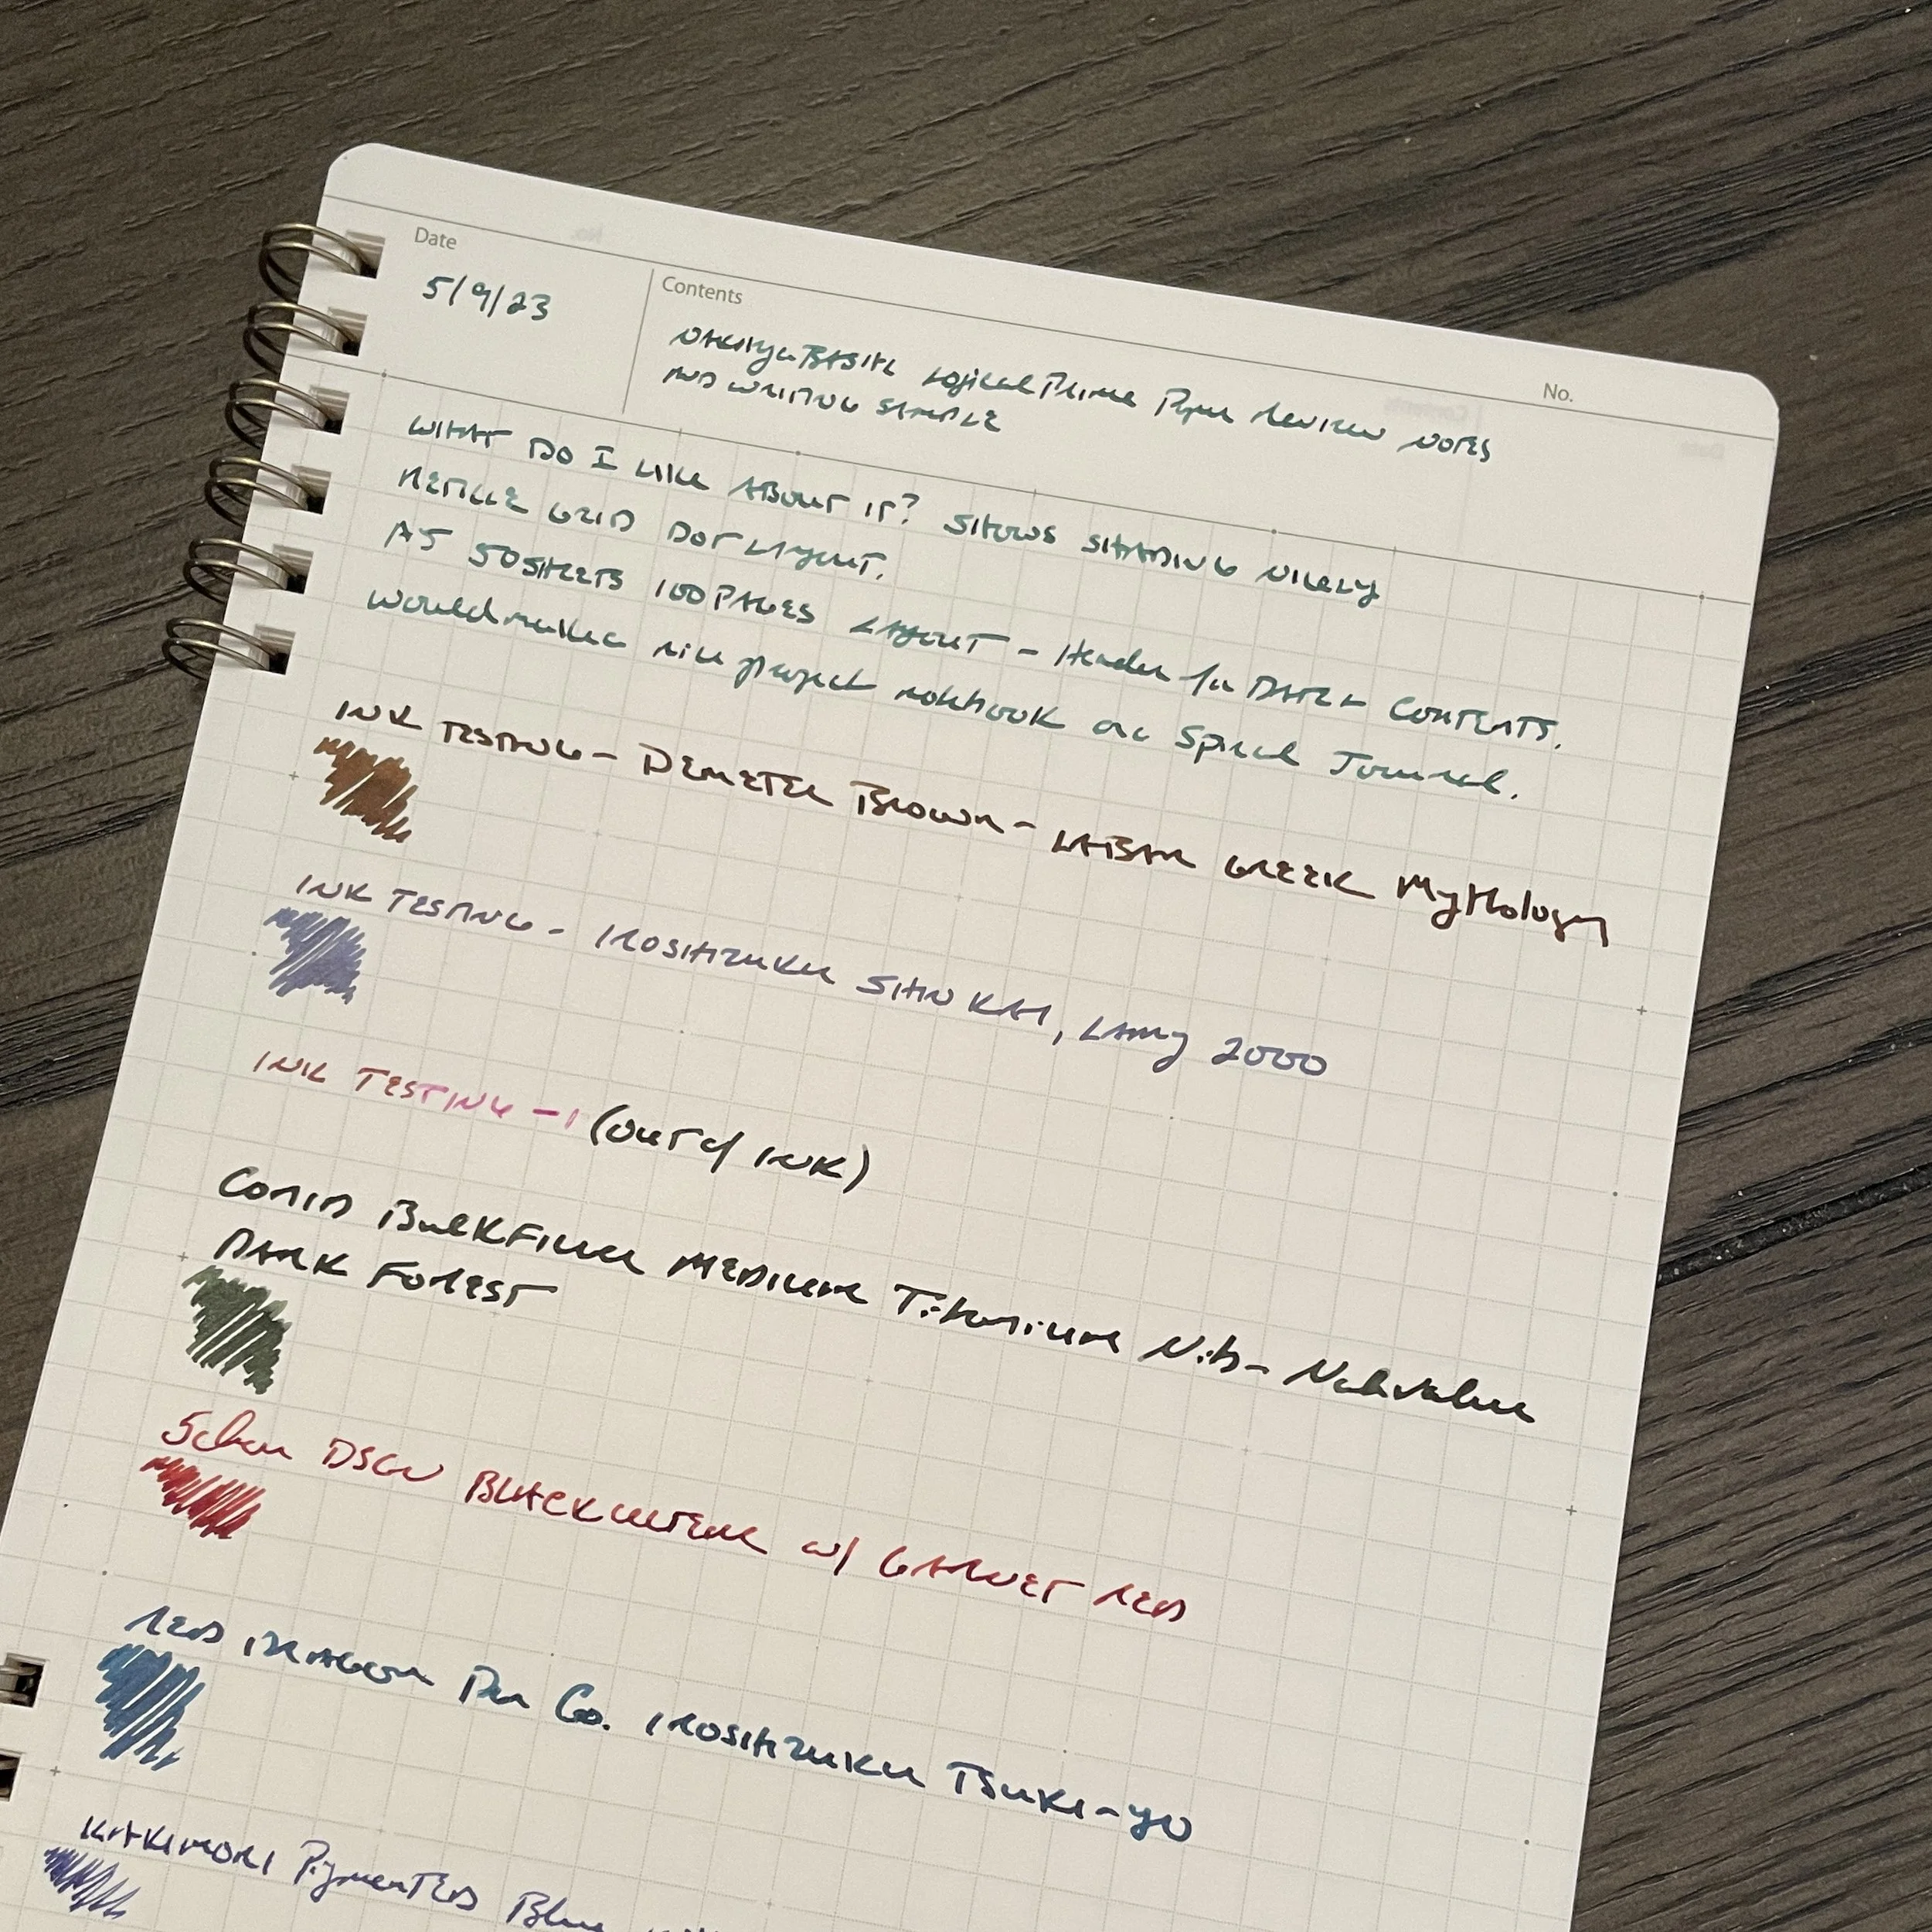 Date
5/9/23
Contents
No.
Nakabayashi Logical Prime Paper Review Notes
AND WRITING SAMPLE
WHAT DO I LIKE ABOUT IT? SHOWS SHADING NICELY
GRID DOT LAYOUT.
A5 50 SHEETS 100 PAGES LAYOUT - Header for DATE + CONTENTS.
Would make a nice project notebook or Spiral Journal.
INK TESTING - DEMETER BROWN - LABAN GREEK Mythology
INK TESTING - IROSHIZUKU SHIN KAI, LAMY 2000
INK TESTING - (OUT of INK)
CONID BULKFILLER MEDIUM Titanium Nib - Nahvalur
DARK FOREST
Schon DSGN BLACK ULTEM w/ GARNET RED
RED DRAGON Pen Co. IROSHIZUKU TSUKI-YO
KAKIMORI PIGMENTED Blue